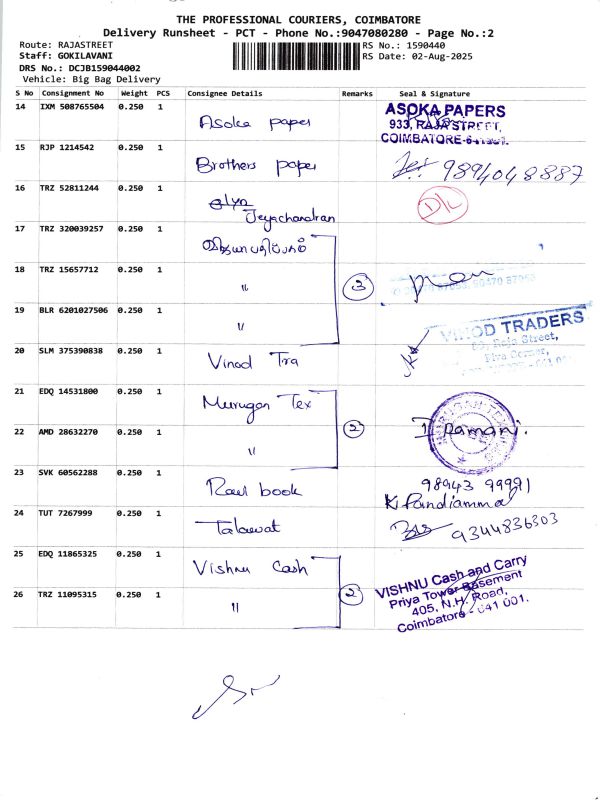 THE PROFESSIONAL COURIERS, COIMBATORE
Delivery Runsheet - PCT - Phone No.:9047080280 - Page No.:2
Route: RAJASTREET
RS No.: 1590440
Staff: GOKILAVANI
RS Date: 02-Aug-2025
DRS No.: DCJB159044002
Vehicle: Big Bag Delivery
S No Consignment No Weight PCS Consignee Details Remarks Seal & Signature
14 IXM 508765504 0.250 1 Asoka paper
ASOKA PAPERS
933, RAJA STREET,
COIMBATORE-641001.
15 RJP 1214542 0.250 1 Brothers paper 9894048887
16 TRZ 52811244 0.250 1
Jeyachandran
17 TRZ 320039257 0.250 1
18 TRZ 15657712 0.250 1 " 3
19 BLR 6201027506 0.250 1 "
20 SLM 375390838 0.250 1 Vinod Tra
VINOD TRADERS
Raja Street,
21 EDQ 14531800 0.250 1 Murugan Tex
22 AMD 28632270 0.250 1 " 2 Ramani.
23 SVK 60562288 0.250 1 Ravi book
98943 99991
K Pandiammal
24 TUT 7267999 0.250 1 Talawat 9344836303
25 EDQ 11865325 0.250 1 Vishnu Cash
26 TRZ 11095315 0.250 1 " 2
VISHNU Cash and Carry
Priya Tower Basement
405, N.H. Road,
Coimbatore - 641 001.